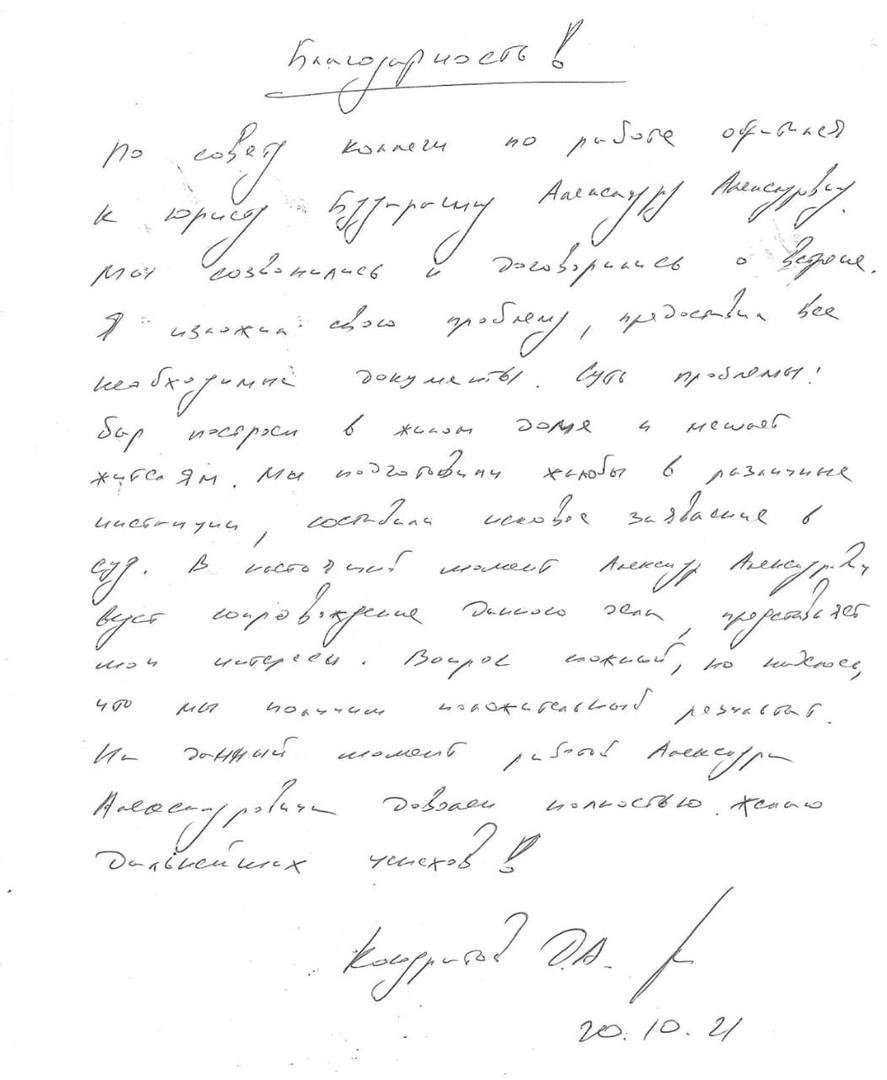 Благодарность!
По совету коллеги по работе обратился
к юристу Александру Александровичу.
Мы созвонились и договорились о встрече.
Я изложил свою проблему, предоставил все
необходимые документы. Суть проблемы:
бар построен в жилом доме и мешает
жителям. Мы подготовили жалобы в различные
инстанции, составили исковое заявление в
суд. В настоящий момент Александр Александрович
ведет сопровождение данного дела, представляет
мои интересы. Вопрос сложный, но надеюсь,
что мы получим положительный результат.
На данный момент работой Александра
Александровича доволен полностью. Желаю
дальнейших успехов!
Д.А.
20.10.21